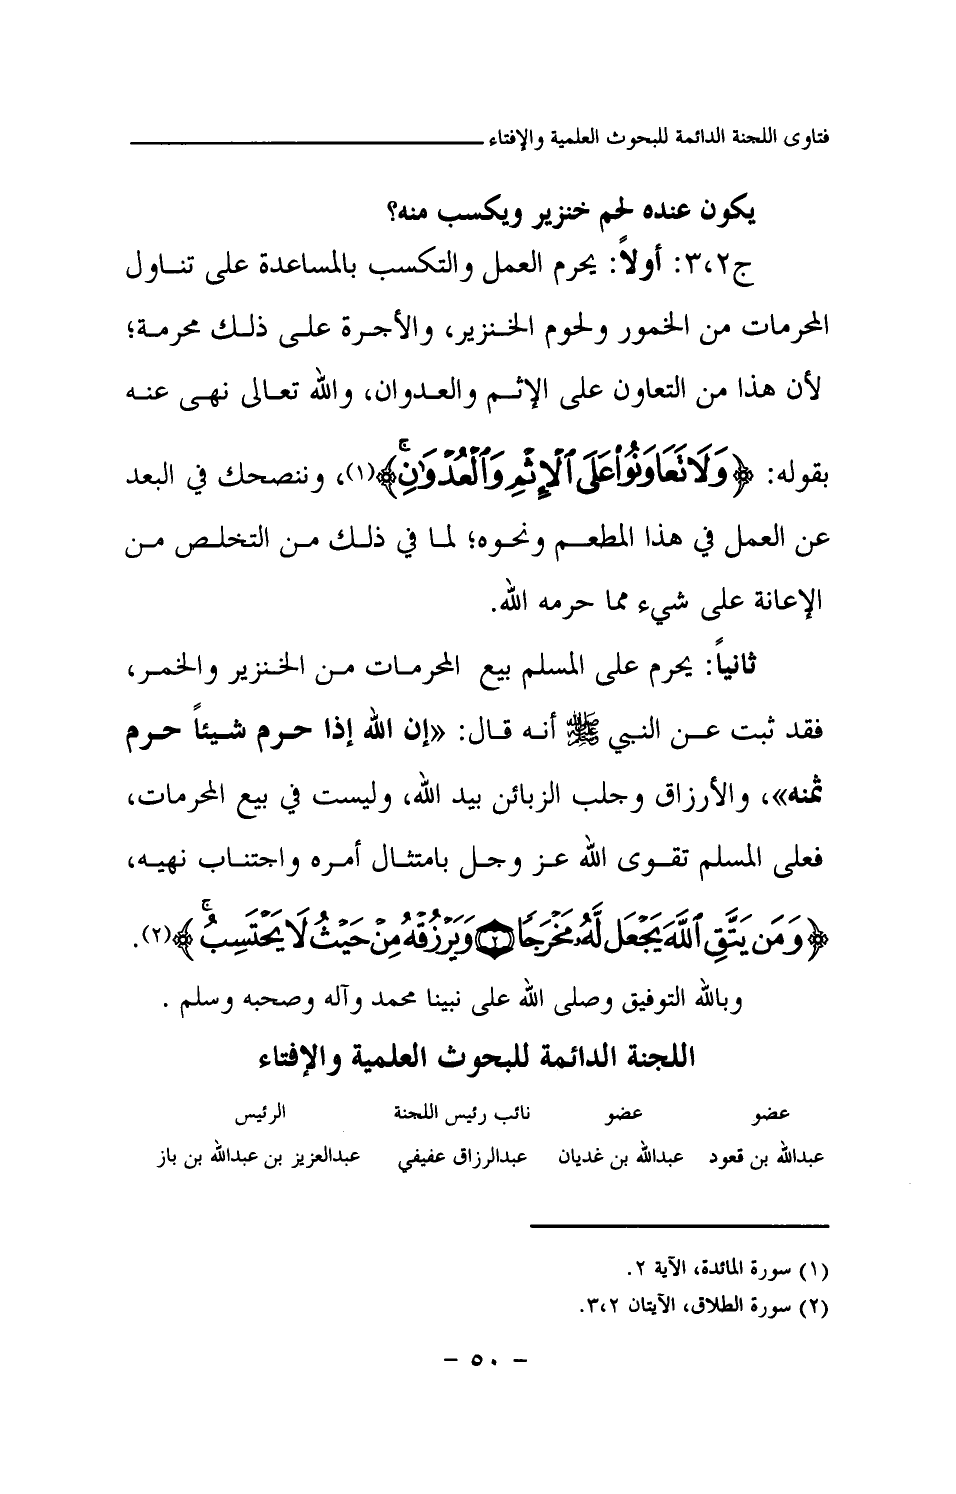 فتاوى اللجنة الدائمة للبحوث العلمية والإفتاء
يكون عنده لحم خنزير ويكسب منه؟
ج٣،٢: أولاً: يحرم العمل والتكسب بالمساعدة على تناول
المحرمات من الخمور ولحوم الخنزير، والأجرة على ذلك محرمة؛
لأن هذا من التعاون على الإثم والعدوان، والله تعالى نهى عنه
بقوله: ﴿وَلَا تَعَاوَنُوا۟ عَلَى ٱلْإِثْمِ وَٱلْعُدْوَٰنِ ۚ﴾(١)، وننصحك في البعد
عن العمل في هذا المطعم ونحوه؛ لما في ذلك من التخلص من
الإعانة على شيء مما حرمه الله.
ثانياً: يحرم على المسلم بيع المحرمات من الخنزير والخمر،
فقد ثبت عن النبي ﷺ أنه قال: «إن الله إذا حرم شيئاً حرم
ثمنه»، والأرزاق وجلب الزبائن بيد الله، وليست في بيع المحرمات،
فعلى المسلم تقوى الله عز وجل بامتثال أمره واجتناب نهيه،
﴿وَمَن يَتَّقِ ٱللَّهَ يَجْعَل لَّهُۥ مَخْرَجًا ٢ وَيَرْزُقْهُ مِنْ حَيْثُ لَا يَحْتَسِبُ ۚ﴾(٢).
وبالله التوفيق وصلى الله على نبينا محمد وآله وصحبه وسلم .
اللجنة الدائمة للبحوث العلمية والإفتاء
عضو عضو نائب رئيس اللجنة الرئيس
عبدالله بن قعود عبدالله بن غديان عبدالرزاق عفيفي عبدالعزيز بن عبدالله بن باز
(١) سورة المائدة، الآية ٢.
(٢) سورة الطلاق، الآيتان ٣،٢.
- ٥٠ -